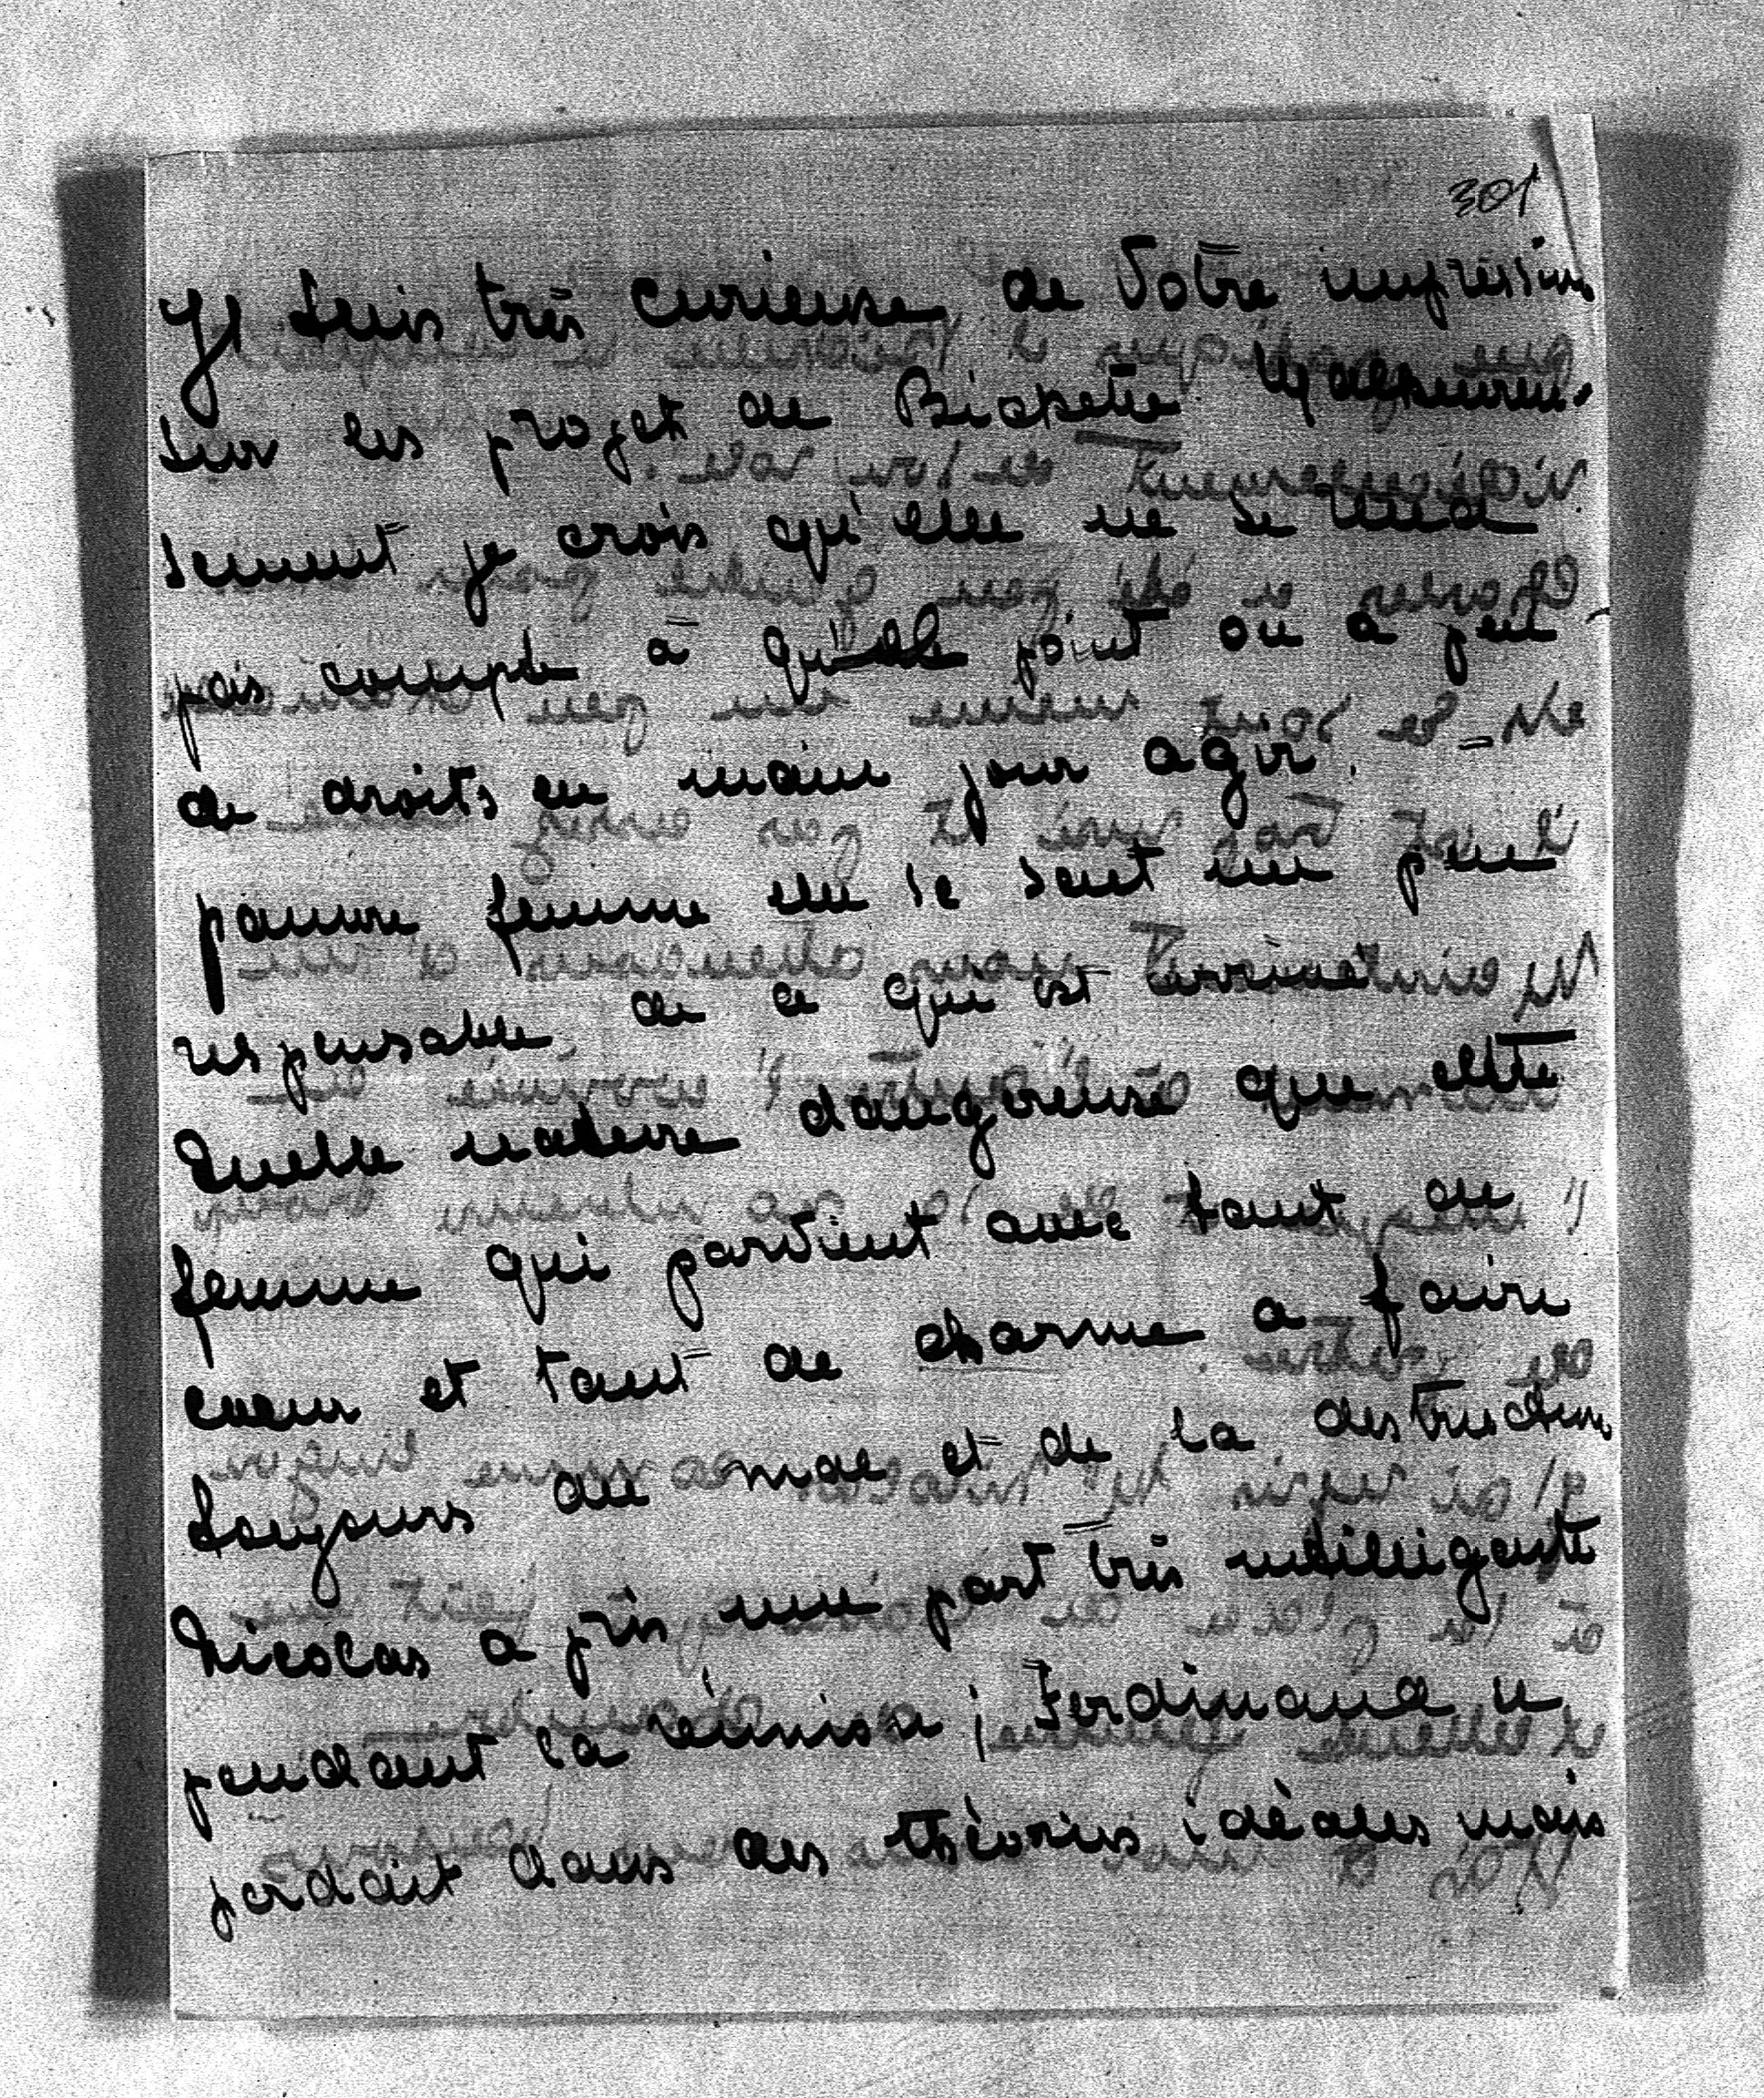 301
Je suis très curieuse de Votre impression
sur les projet de Bispetre. Malheureu-
sement je crois qu'elle ne se rend
pas compte à qu'elle point on a peu
de droits en main pour agir.
pauvre femme elle se sent un peu
responsable de ce qui est arrivé
Quelle nature dangereuse que cette
femme qui parvient avec tant de
coeur et tant de charme a faire
toujours du mal et de la destruction
Nicolas a pris une part très intelligente
pendant la réunion; Ferdinand se
perdait dans des théories idéales mais